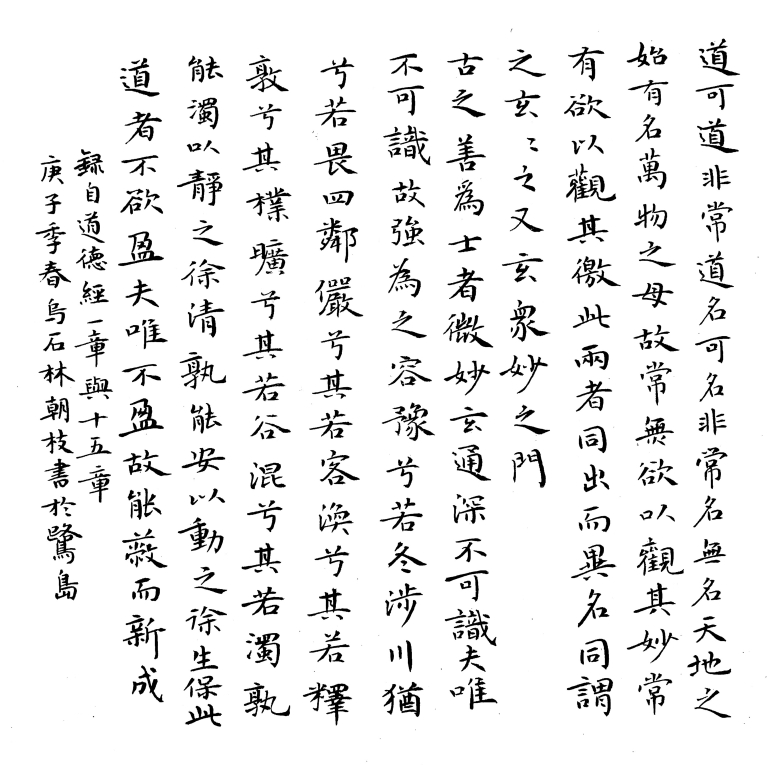 道可道非常道名可名非常名無名天地之
始有名萬物之母故常無欲以觀其妙常
有欲以觀其徼此兩者同出而異名同謂
之玄〻之又玄衆妙之門
古之善爲士者微妙玄通深不可識夫唯
不可識故強為之容豫兮若冬涉川猶
兮若畏四鄰儼兮其若客渙兮其若釋
敦兮其樸曠兮其若谷混兮其若濁孰
能濁以靜之徐清孰能安以動之徐生保此
道者不欲盈夫唯不盈故能蔽而新成
錄自道德經一章與十五章
庚子季春烏石林朝枝書於鷺島